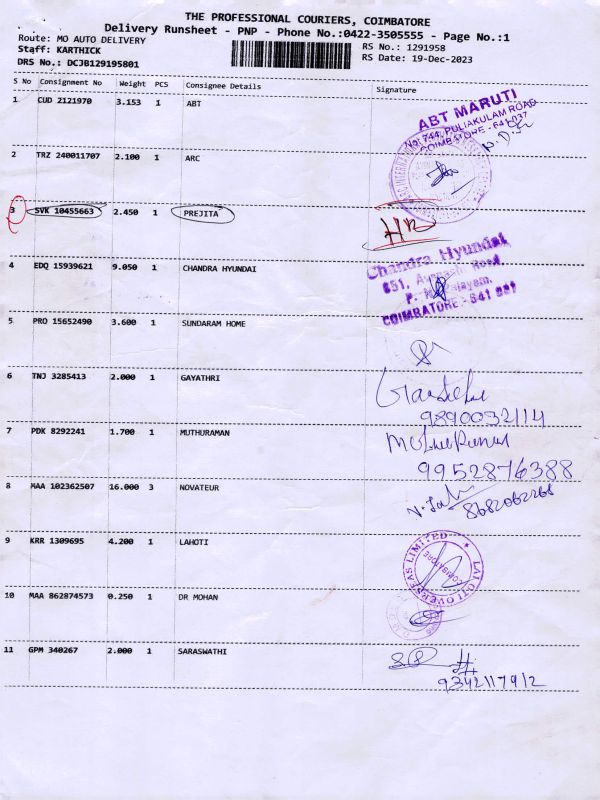 THE PROFESSIONAL COURIERS, COIMBATORE
Delivery Runsheet - PNP - Phone No.:0422-3505555 - Page No.:1
Route: MO AUTO DELIVERY
RS No.: 1291958
Staff: KARTHICK
RS Date: 19-Dec-2023
DRS No.: DCJB129195801
S No Consignment No Weight PCS Consignee Details Signature
1 CUD 2121970 3.153 1 ABT
ABT MARUTI
No: 744, PULIAKULAM ROAD
COIMBATORE - 641 037
2 TRZ 240011707 2.100 1 ARC
3 SVK 10455663 2.450 1 PREJITA
HB
4 EDQ 15939621 9.050 1 CHANDRA HYUNDAI
Chandra Hyundai
COIMBATORE - 641 037
5 PRO 15652490 3.600 1 SUNDARAM HOME
6 TNJ 3285413 2.000 1 GAYATHRI
9890032114
7 PDK 8292241 1.700 1 MUTHURAMAN
9952876388
8 MAA 102362507 16.000 3 NOVATEUR
8682062268
9 KRR 1309695 4.200 1 LAHOTI
LAHOTI OVERSEAS LIMITED
COIMBATORE
10 MAA 862874573 0.250 1 DR MOHAN
11 GPM 340267 2.000 1 SARASWATHI
9342117912